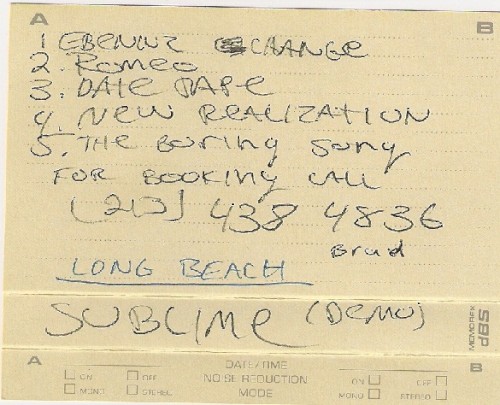 A B
1 EBENINZ CHANGE
2. ROMEO
3. DATE RAPE
4. NEW REALIZATION
5. THE BORING SONG
FOR BOOKING CALL
(213) 438 4836
Brad
LONG BEACH
SUBLIME (DEMO)
MEMOREX
SBP
A B
DATE/TIME
ON OFF NOISE REDUCTION ON OFF
MONO STEREO MODE MONO STEREO